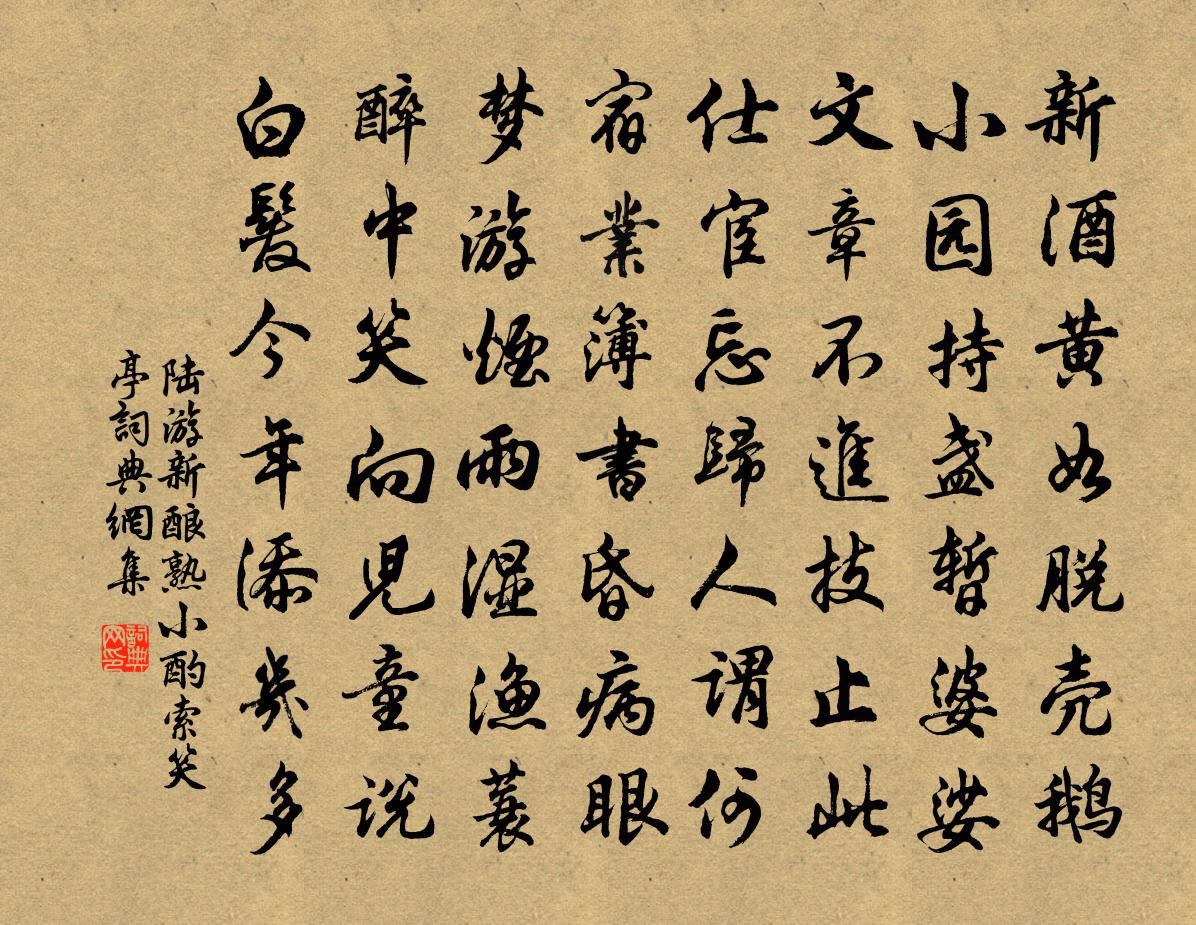 新酒黄如脱壳鹅
小园持盏暂婆娑
文章不進技止此
仕宦忘歸人谓何
宿業簿書昏病眼
梦游煙雨湿渔蓑
醉中笑向児童说
白髮今年添幾多
陆游新酿熟小酌索笑
亭詞典網集
詞典网印